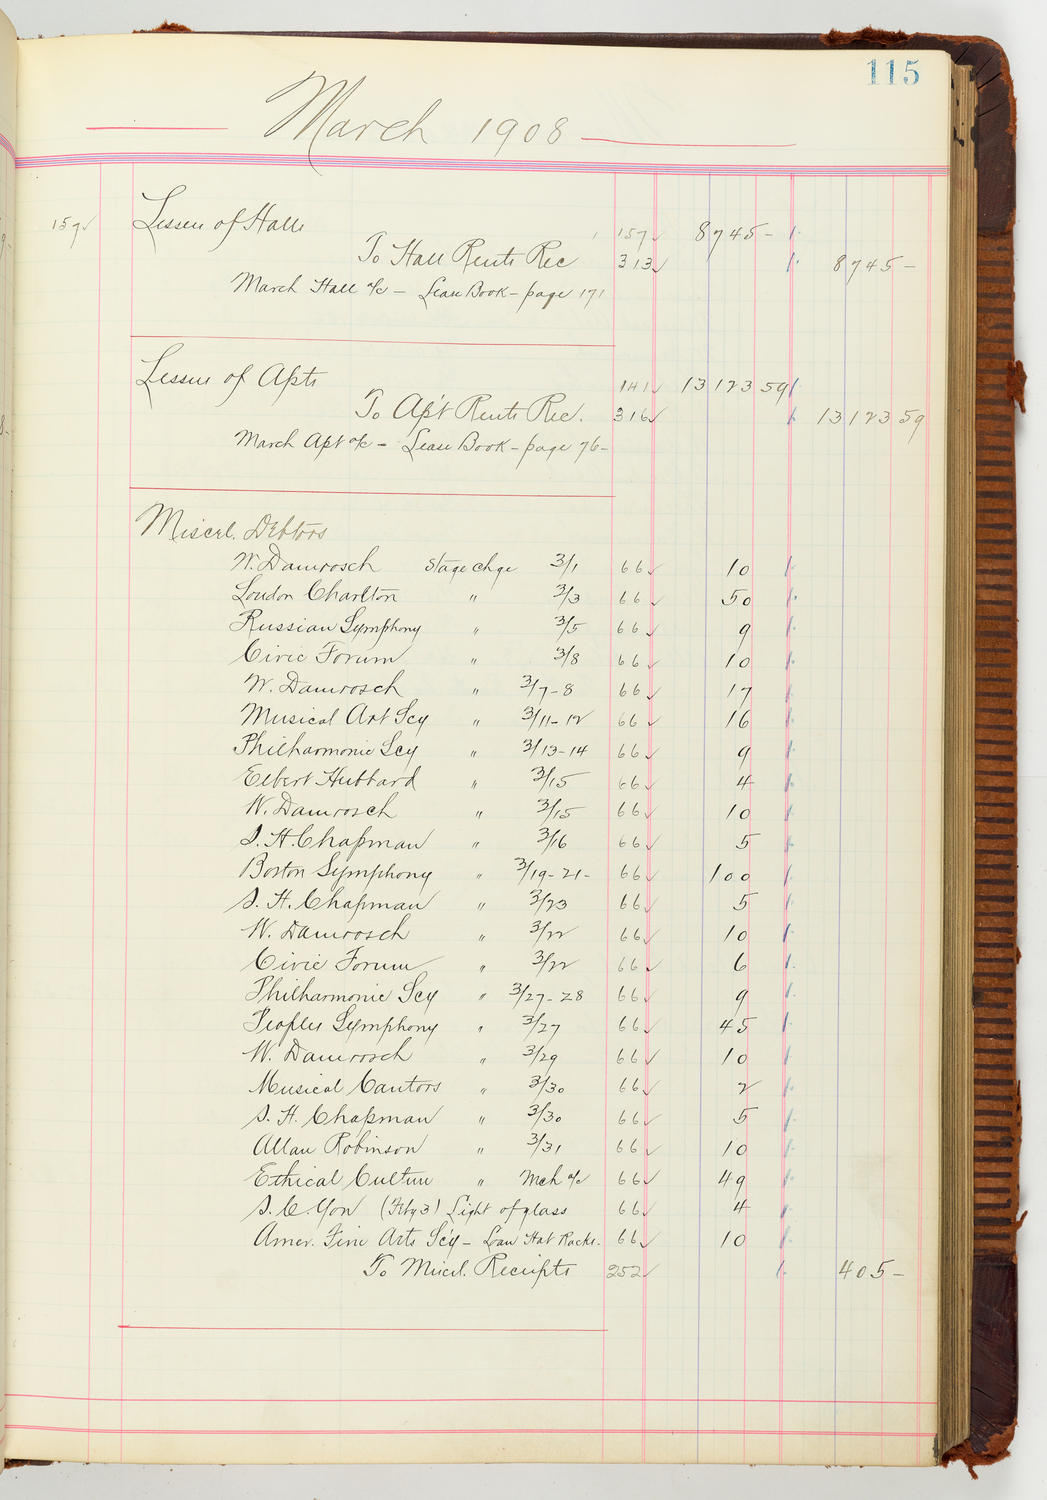 115
March 1908
157 Lessees of Halls 157 8745 -
To Hall Rents Rec 313 8745 -
March Hall a/c - Lease Book - page 171
Lessees of Apts 141 13123 59
To Apt Rents Rec. 316 13123 59
March Apt a/c - Lease Book - page 76 -
Miscel. Debtors
W. Damrosch Stage chge 3/1 66 10
Loudon Charlton " 3/3 66 50
Russian Symphony " 3/5 66 9
Civic Forum " 3/8 66 10
W. Damrosch " 3/7-8 66 17
Musical Art Scy " 3/11-12 66 16
Philharmonic Scy " 3/13-14 66 9
Elbert Hubbard " 3/15 66 4
W. Damrosch " 3/15 66 10
S. H. Chapman " 3/16 66 5
Boston Symphony " 3/19-21- 66 100
S. H. Chapman " 3/23 66 5
W. Damrosch " 3/22 66 10
Civic Forum " 3/22 66 6
Philharmonic Scy " 3/27-28 66 9
Peoples Symphony " 3/27 66 45
W. Damrosch " 3/29 66 10
Musical Cantors " 3/30 66 2
S. H. Chapman " 3/30 66 5
Allan Robinson " 3/31 66 10
Ethical Culture " Mch a/c 66 49
S. C. Yon (Feby 3) Light of glass 66 4
Amer. Fine Arts Sc'y - Loan Hat Racks. 66 10
To Miscel. Receipts 252 405 -